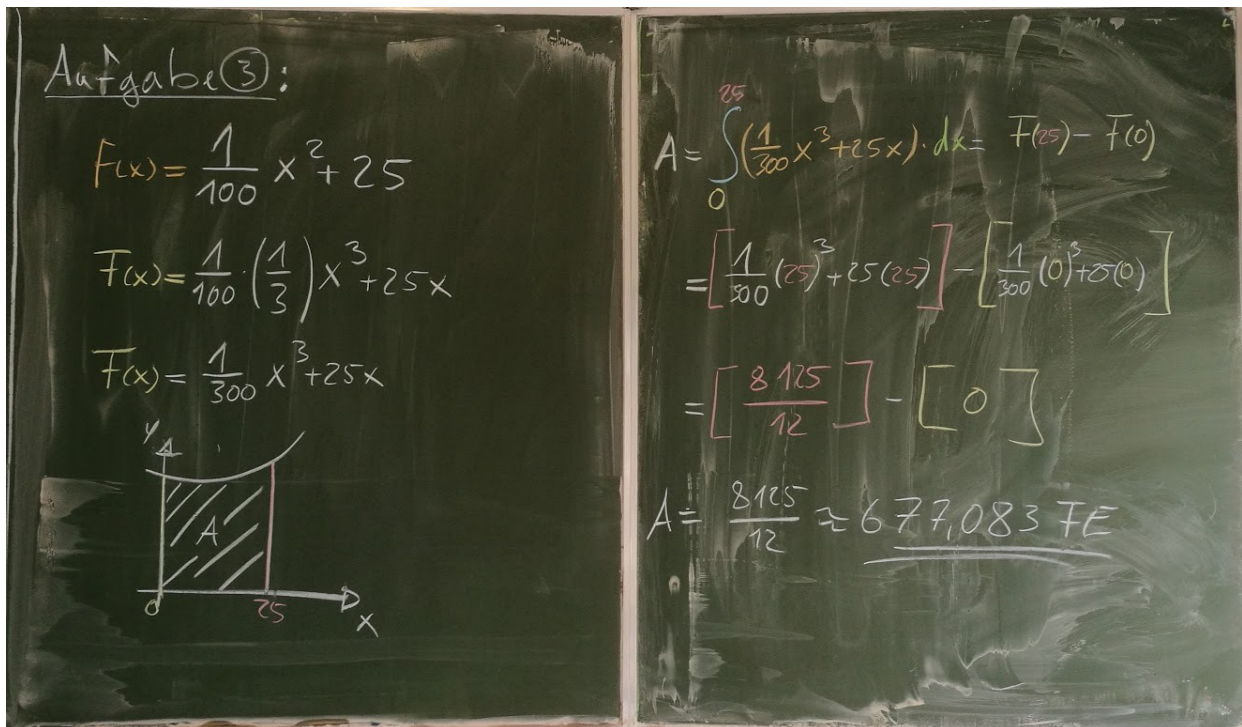 Aufgabe ③:
f(x) = 1/100 x² + 25
F(x) = 1/100 · (1/3) x³ + 25x
F(x) = 1/300 x³ + 25x
y
A
0 25 x
A = ∫₀²⁵ (1/300 x³ + 25x) · dx = F(25) − F(0)
= [1/300 (25)³ + 25(25)] − [1/300 (0)³ + 25(0)]
= [8125/12] − [0]
A = 8125/12 ≈ 677,083 FE